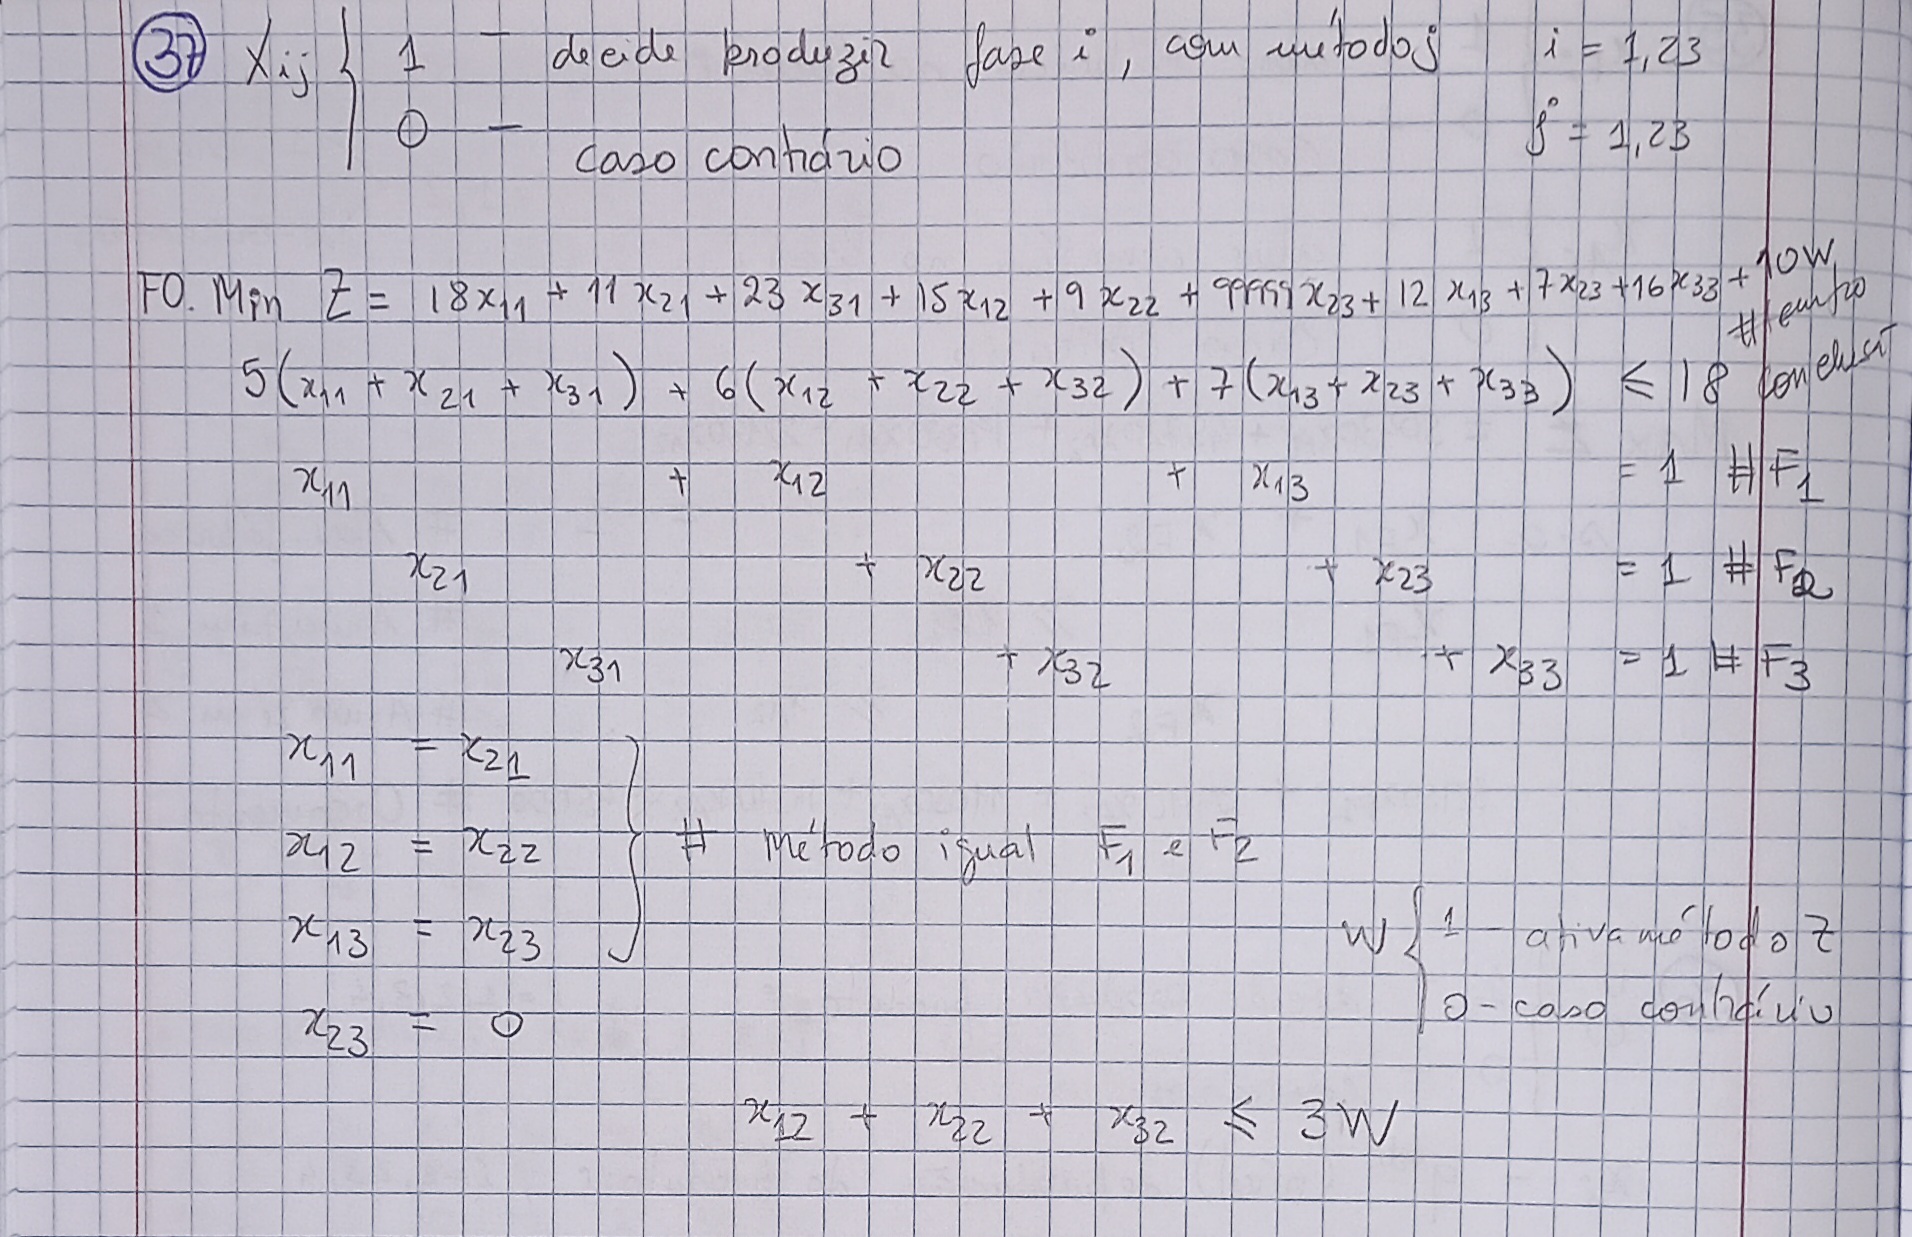 37 Xij { 1 - decide produzir fase i, com método j i = 1,23
0 - caso contrário j = 1,23
FO. Min Z = 18x11 + 11x21 + 23x31 + 15x12 + 9x22 + 99999x23 + 12x13 + 7x23 + 16x33 + 10W
5(x11 + x21 + x31) + 6(x12 + x22 + x32) + 7(x13 + x23 + x33) ≤ 18 #
x11 + x12 + x13 = 1 # F1
x21 + x22 + x23 = 1 # F2
x31 + x32 + x33 = 1 # F3
x11 = x21
x12 = x22 } # método igual F1 e F2
x13 = x23
W { 1 - ativa método 2
x23 = 0
0 - caso contrário
x12 + x22 + x32 ≤ 3W